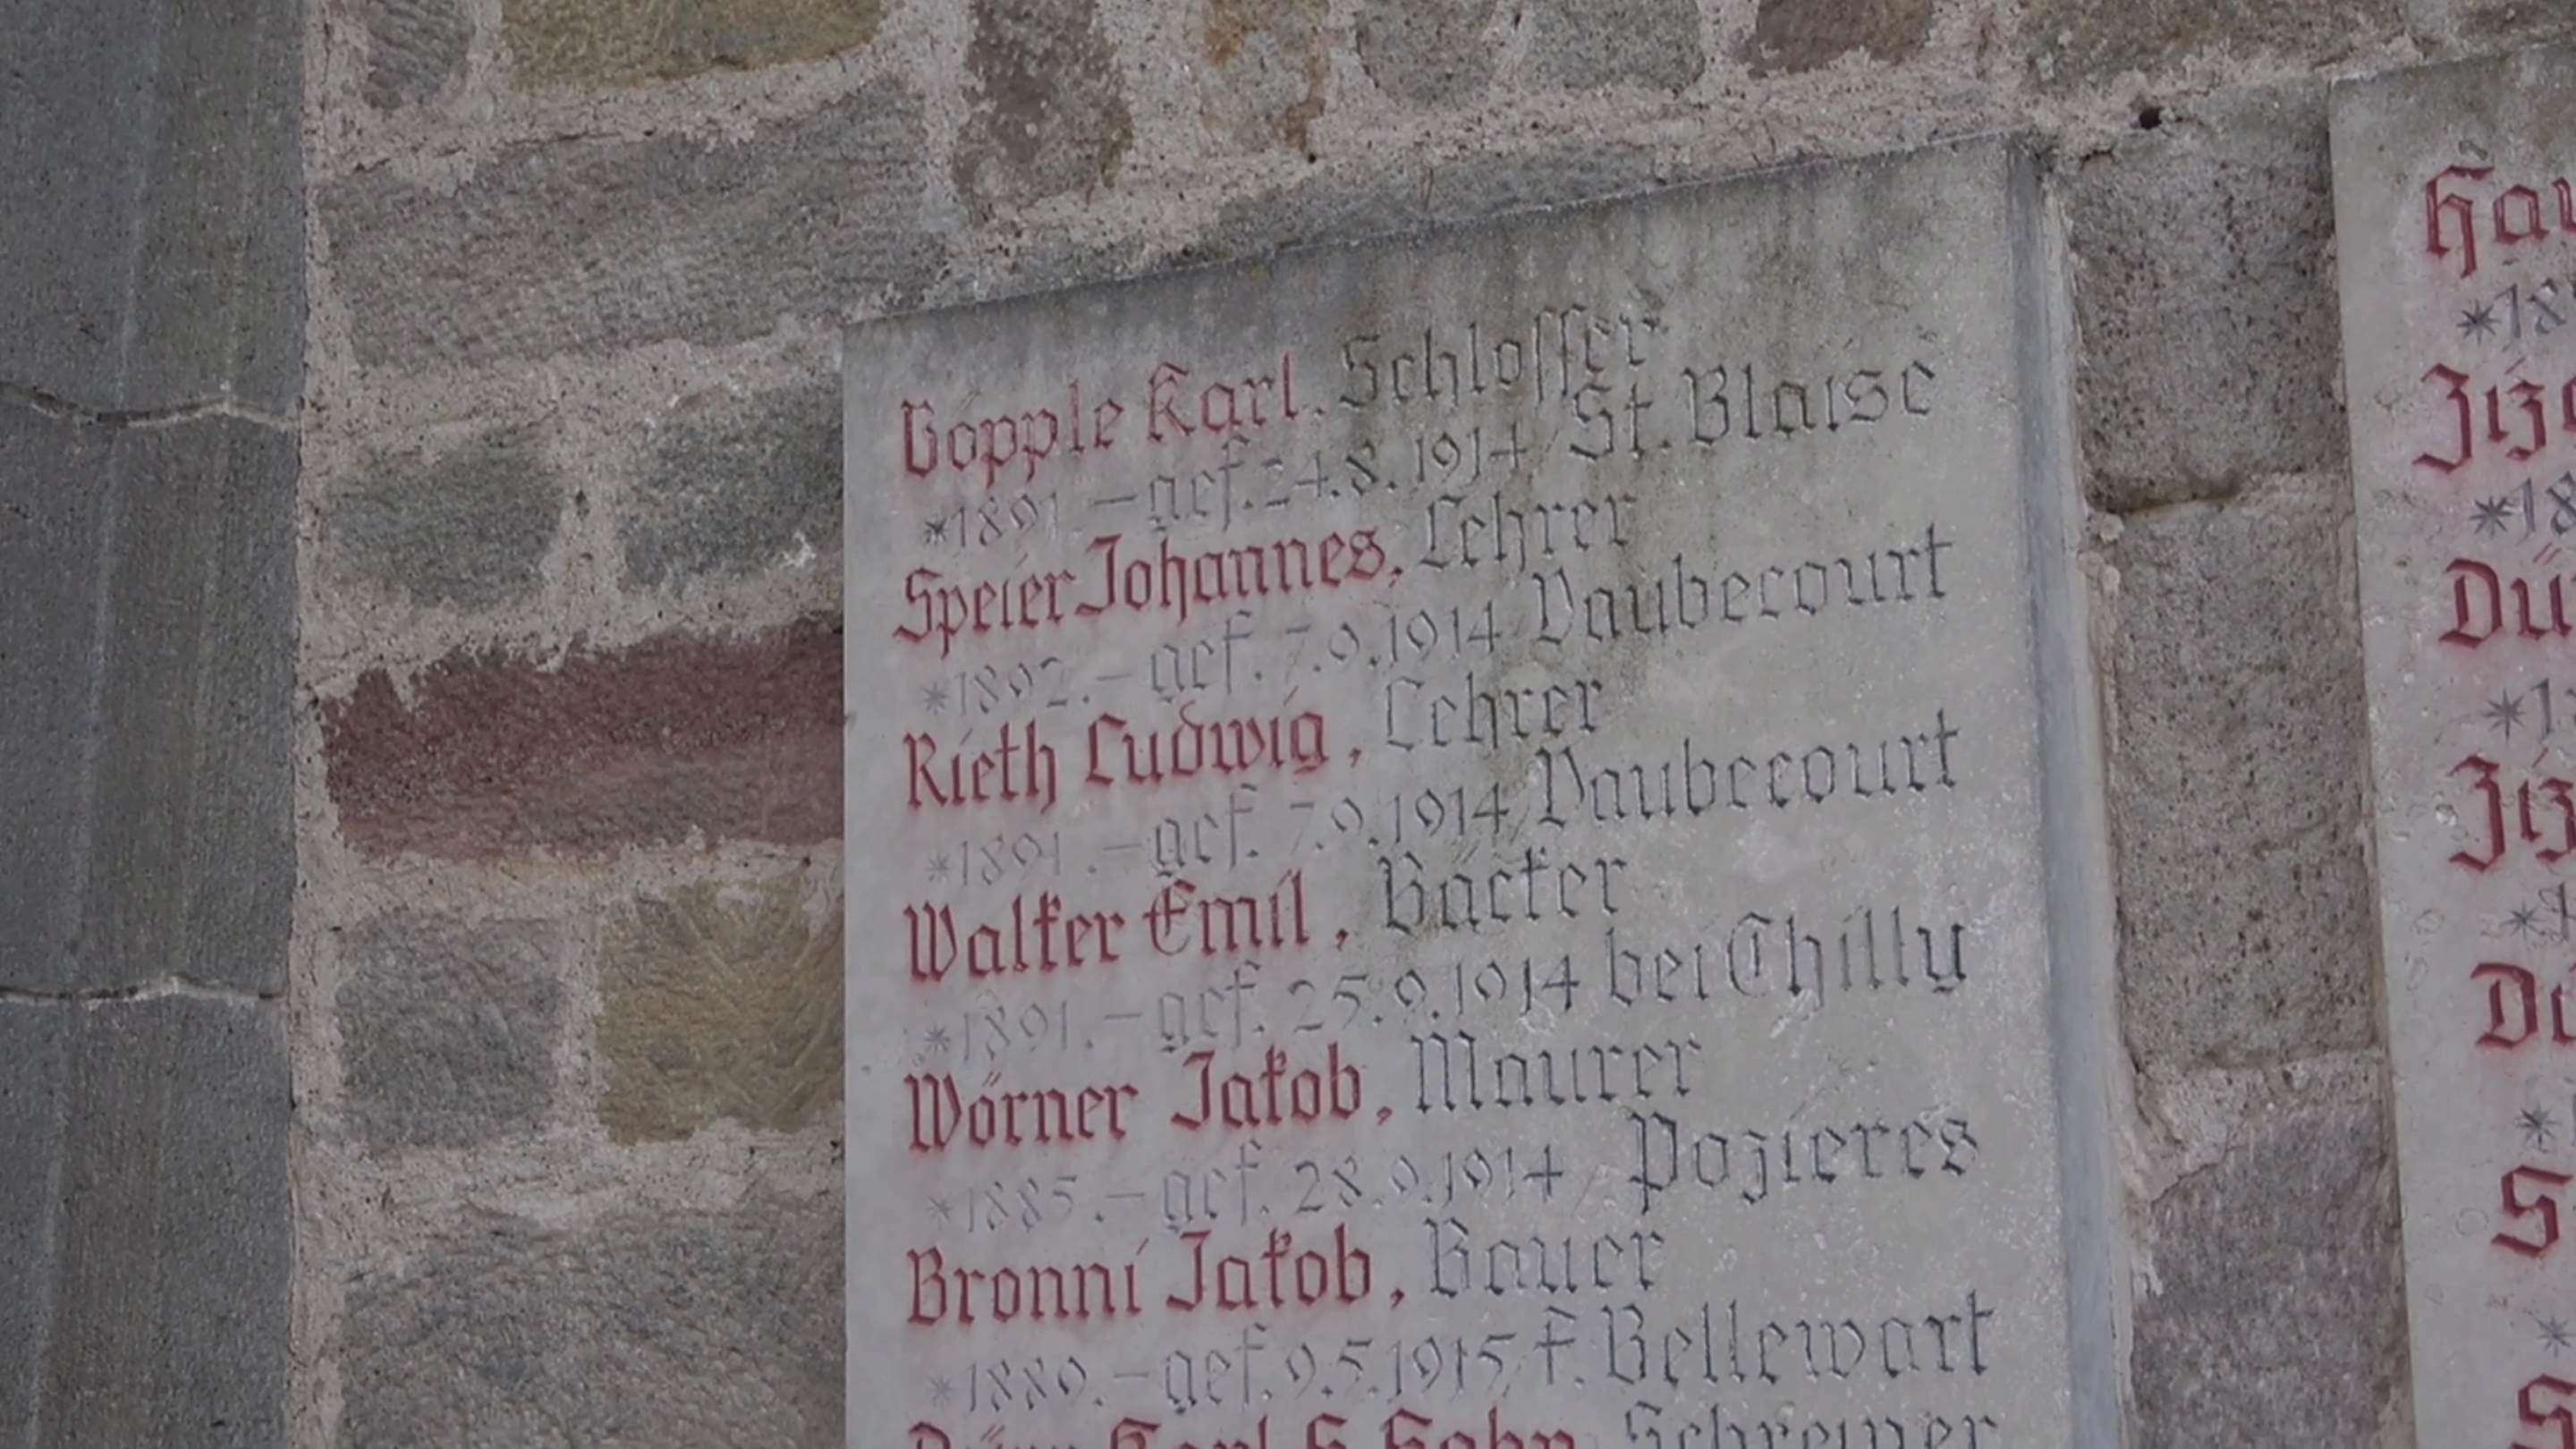 Göpple Karl. Schlosser
*1891.– gef. 24.8.1914 St. Blaise
Speier Johannes, Lehrer
*1892.– gef. 7.9.1914 Vaubecourt
Rieth Ludwig, Lehrer
*1891.– gef. 7.9.1914 Vaubecourt
Walker Emil, Bäcker
*1891.– gef. 25.9.1914 bei Chilly
Wörner Jakob, Maurer
*1885.– gef. 28.9.1914, Pozieres
Bronni Jakob, Bauer
*1889.– gef. 9.5.1915, f. Bellewart
Karl S. Sohn, Schreiner